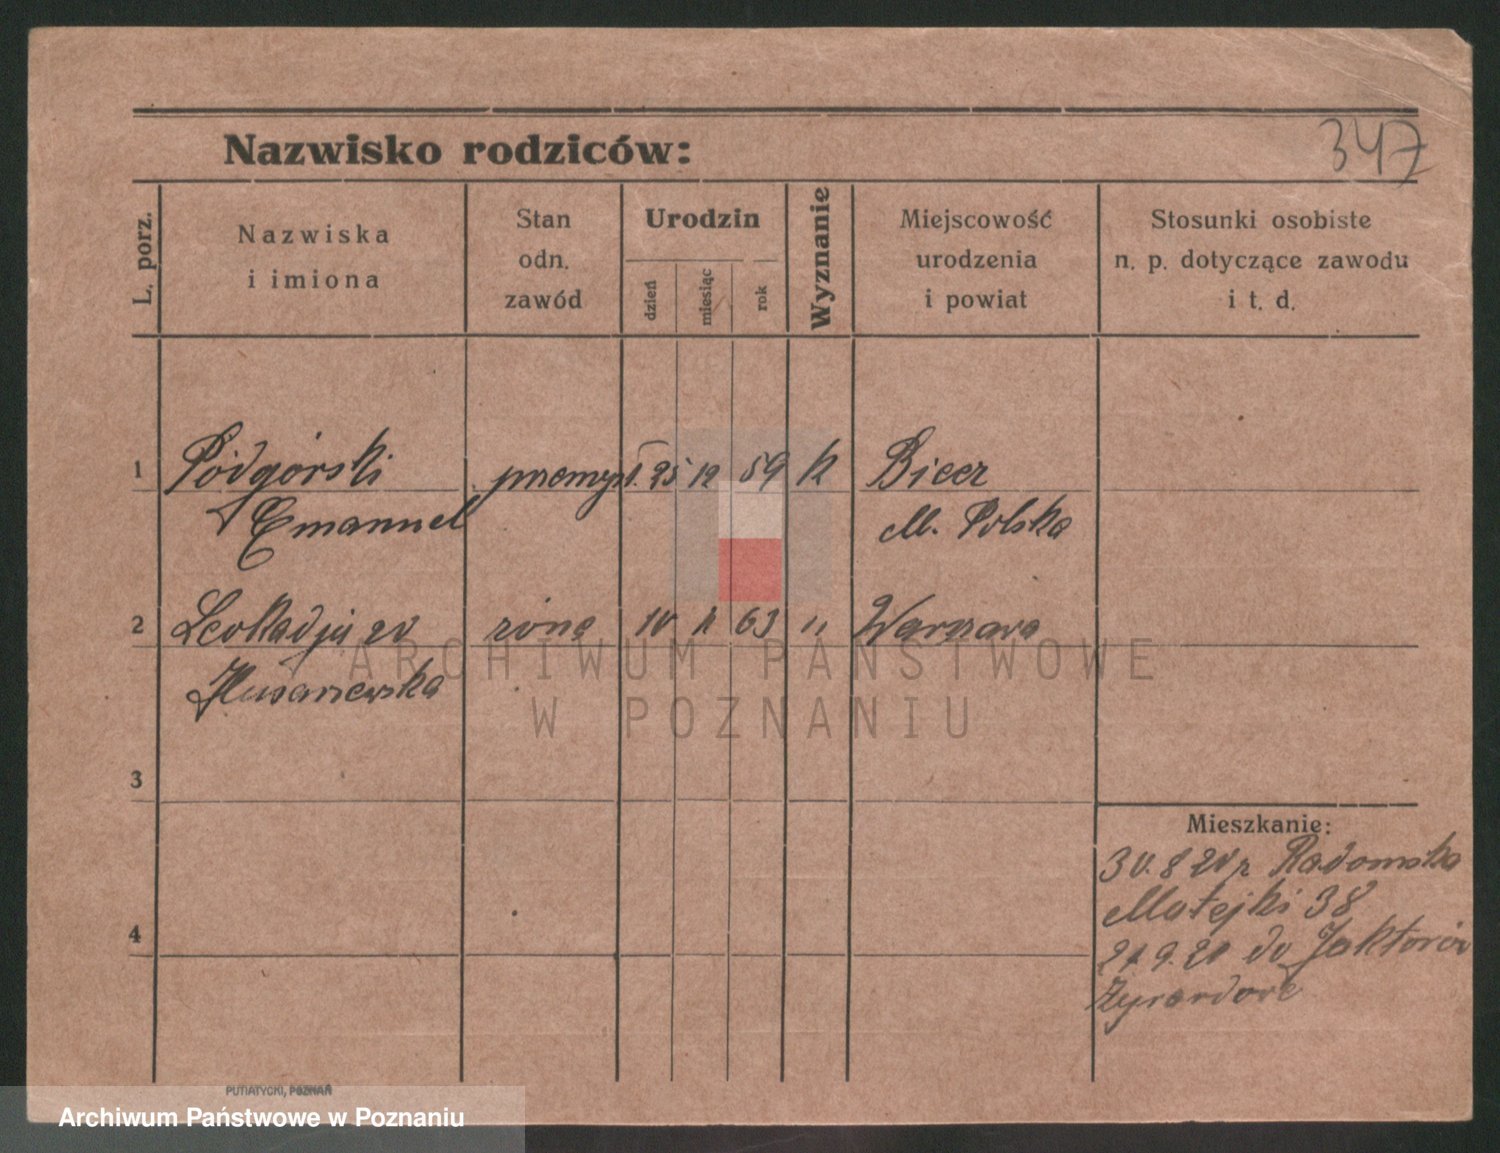 347
Nazwisko rodziców:
L. porz.
Nazwiska
i imiona
Stan
odn.
zawód
Urodzin
dzień
miesiąc
rok
Wyznanie
Miejscowość
urodzenia
i powiat
Stosunki osobiste
n. p. dotyczące zawodu
i t. d.
1 Podgórski przemysł. 25 12 59 k Biecz
Emanuel M. Polska
2 Leokadja zd żona 10 63 " Warszawa
Husarzewska
ARCHIWUM PAŃSTWOWE
W POZNANIU
3
4
Mieszkanie:
30.8 20 z Radomska
Matejki 38
9.20 do Jaktorów
Żyrardow
PUTIATYCKI, POZNAŃ
Archiwum Państwowe w Poznaniu